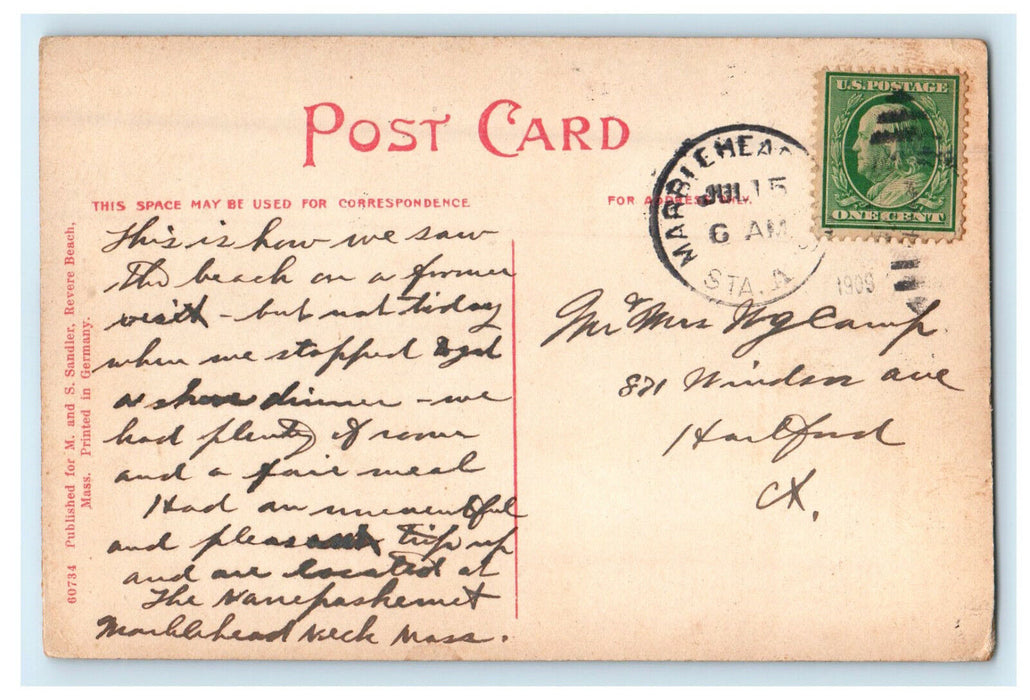 POST CARD
THIS SPACE MAY BE USED FOR CORRESPONDENCE
FOR ADDRESS ONLY.
U.S. POSTAGE
ONE CENT
MARBLEHEAD
JUL 15
6 AM
STA. A
1909
This is how we saw
the beach on a former
visit - but not today
when we stopped to get
a shore dinner - we
had plenty of room
and a fair meal
Had an uneventful
and pleasant trip up
and are located at
The Nanepashemet
Marblehead Neck Mass.
Mr & Mrs Camp
821 Windsor ave
Hartford
Ct.
60734 Published for M. and S. Sandler, Revere Beach,
Mass. Printed in Germany.